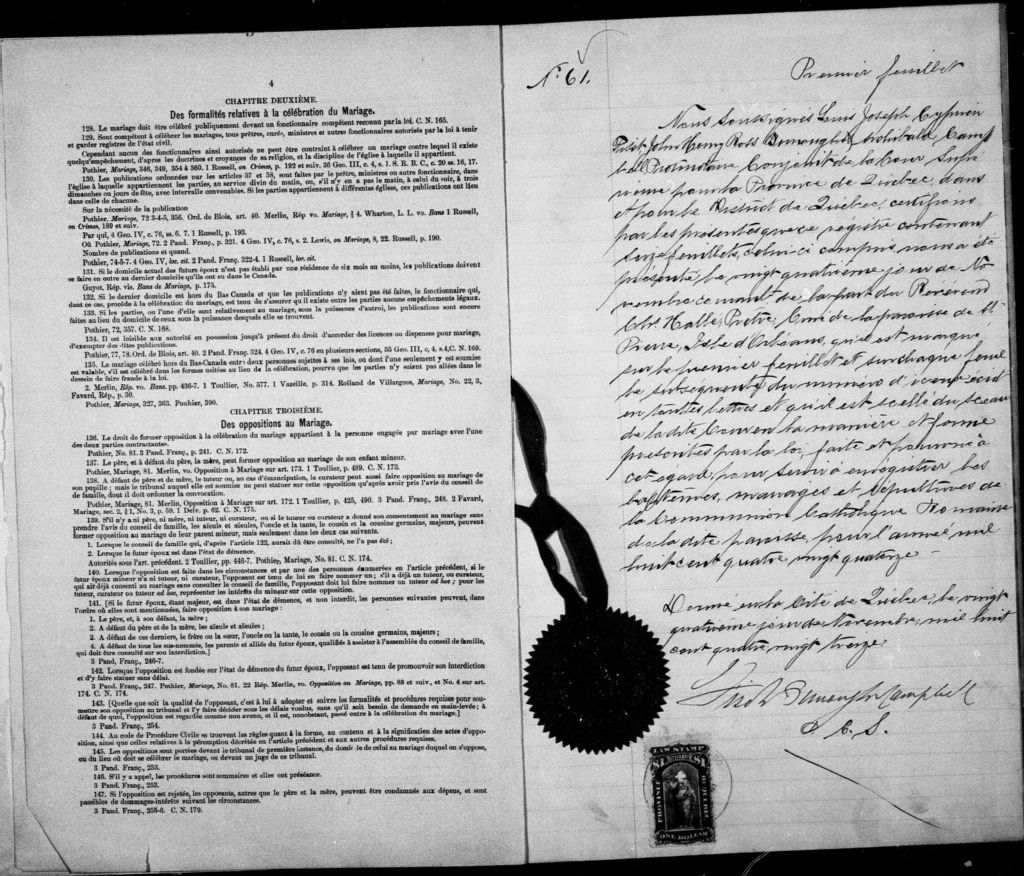 4
CHAPITRE DEUXIÈME.
Des formalités relatives à la célébration du Mariage.
128. Le mariage doit être célébré publiquement devant un fonctionnaire compétent reconnu par la loi. C. N. 165.
129. Sont compétents à célébrer les mariages, tous prêtres, curés, ministres et autres fonctionnaires autorisés par la loi à tenir
et garder registres de l'état civil.
Cependant aucun des fonctionnaires ainsi autorisés ne peut être contraint à célébrer un mariage contre lequel il existe
quelqu'empêchement, d'après les doctrines et croyances de sa religion, et la discipline de l'église à laquelle il appartient.
Pothier, Mariage, 346, 349, 354 & 360. 1 Russell, on Crimes, p. 192 et suiv. 36 Geo. III, c. 4, s. 1. S. R. B. C., c. 20 ss. 16, 17.
130. Les publications ordonnées par les articles 57 et 58, sont faites par le prêtre, ministre ou autre fonctionnaire, dans
l'église à laquelle appartiennent les parties, au service divin du matin, ou, s'il n'y en a pas le matin, à celui du soir, à trois
dimanches ou jours de fête, avec intervalle convenables. Si les parties appartiennent à différentes églises, ces publications ont lieu
dans celle de chacune.
Sur la nécessité de la publication
Pothier, Mariage, 72 3-4-5, 356. Ord. de Blois, art. 40. Merlin, Rép vo. Mariage, § 4. Wharton, L. L. vo. Bans 1 Russell,
on Crimes, 189 et suiv.
Par qui, 4 Geo. IV, c. 76, ss. 6. 7. 1 Russell, p. 193.
Où Pothier, Mariage, 72. 2 Pand. Franç., p. 321. 4 Geo. IV, c. 76, s. 2. Lewis, on Mariage, 8, 22. Russell, p. 190.
Nombre de publications et quand.
Pothier, 74-5-7. 4 Geo. IV, loc. cit. 2 Pand. Franç. 322-4. 1 Russell, loc. cit.
131. Si le domicile actuel des futurs époux n'est pas établi par une résidence de six mois au moins, les publications doivent
se faire en outre au dernier domicile qu'ils ont eu dans le Canada.
Guyot. Rép. vis. Bans de Mariage, p. 175.
132. Si le dernier domicile est hors du Bas Canada et que les publications n'y aient pas été faites, le fonctionnaire qui,
dans ce cas, procède à la célébration du mariage, est tenu de s'assurer qu'il existe entre les parties aucuns empêchements légaux.
133. Si les parties, ou l'une d'elle sont relativement au mariage, sous la puissance d'autrui, les publications sont encore
faites au lieu du domicile de ceux sous la puissance desquels elle se trouvent.
Pothier, 72, 357. C. N. 168.
134. Il est loisible aux autorité en possession jusqu'à présent du droit d'accorder des licences ou dispenses pour mariage,
d'exempter des dites publications.
Pothier, 77, 78. Ord. de Blois, art. 40. 2 Pand. Franç. 324. 4 Geo. IV, c. 76 en plusieurs sections, 35 Geo III, c, 4. s.4, C. N. 169.
135. Le mariage célébré hors du Bas-Canada entre deux personnes sujettes à ses lois, ou dont l'une seulement y est soumise
est valable, s'il est célébré dans les formes usitées au lieu de la célébration, pourvu que les parties n'y soient pas allées dans le
dessein de faire fraude à la loi.
2. Merlin, Rép. vo. Bans. pp. 436-7. 1 Toullier, No. 577. 1 Vazeille, p. 314. Rolland de Villargues, Mariage, No. 22, 3,
Favard, Rép., p. 30.
Pothier, Mariage, 327, 363. Pouhier, 390.
CHAPITRE TROISIÈME.
Des oppositions au Mariage.
136. Le droit de former opposition à la célébration du mariage appartient à la personne engagée par mariage avec l'une
des deux parties contractantes.
Pothier, No. 81. 3 Pand. Franç., p. 241. C. N. 172.
137. Le père, et à défaut du père, la mère, peut former opposition au mariage de son enfant mineur.
Pothier, Mariage, 81. Merlin, vo. Opposition à Mariage sur art. 173. 1 Toullier, p. 489. C. N. 173.
138. A défaut de père et de mère, le tuteur ou, au cas d'émancipation, le curateur peut aussi faire opposition au mariage de
son pupille ; mais le tribunal auquel elle est soumise ne peut statuer sur cette opposition qu'après avoir pris l'avis du conseil de
famille, dont il doit ordonner la convocation.
Pothier, Mariage, 81. Merlin, Opposition à Mariage sur art. 172. 1 Toullier, p. 425, 490. 3 Pand. Franç., 248. 2 Favard,
Mariage, sec. 2, § 1, No. 3, p. 59. 1 Delv. p. 62. C. N. 175.
139. S'il n'y a ni père, ni mère, ni tuteur, ni curateur, ou si le tuteur ou curateur a donné son consentement au mariage sans
prendre l'avis du conseil de famille, les aïeuls et aïeules, l'oncle et la tante, le cousin et la cousine germains, majeurs, peuvent
former opposition au mariage de leur parent mineur, mais seulement dans les deux cas suivants.
1. Lorsque le conseil de famille qui, d'après l'article 122, aurait dû être consulté, ne l'a pas été ;
2. Lorsque le futur époux est dans l'état de démence.
Autorités sous l'art. précédent. 2 Toullier, pp. 446-7. Pothier, Mariage, No. 81. C. N. 174.
140. Lorsque l'opposition est faite dans les circonstances et par une des personnes énumérées en l'article précédent, si le
futur époux mineur n'a ni tuteur ni curateur, l'opposant est tenu de lui en faire nommer un ; s'il a déjà un tuteur, ou curateur,
qui ait déjà consenti au mariage sans consulter le conseil de famille, l'opposant doit lui faire nommer un tuteur ad hoc ; pour les
tuteur, curateur ou tuteur ad hoc, représenter les intérêts du mineur sur cette opposition.
141. [Si le futur époux, étant majeur, est dans l'état de démence, et non interdit, les personnes suivantes peuvent, dans
l'ordre où elles sont mentionnées, faire opposition à son mariage :
1. Le père, et, à son défaut, la mère ;
2. A défaut du père et de la mère, les aïeuls et aïeules ;
3. A défaut de ces derniers, le frère ou la sœur, l'oncle ou la tante, le cousin ou la cousine germains, majeurs ;
4. A défaut de tous les sus-nommés, les parents et alliés du futur époux, qualifiés à assister à l'assemblée du conseil de famille,
qui doit être consulté sur son interdiction.]
3 Pand. Franç., 246-7.
142. Lorsque l'opposition est fondée sur l'état de démence du futur époux, l'opposant est tenu de promouvoir son interdiction
et d'y faire statuer sans délai.
3 Pand. Franç., 247. Pothier, Mariage, No. 81. 22 Rép. Merlin, vo. Opposition au Mariage, pp. 88 et suiv., et No. 4 sur art.
174. C. N. 174.
143. [Quelle que soit la qualité de l'opposant, c'est à lui à adopter et suivre les formalités et procédures requises pour sou-
mettre son opposition au tribunal et l'y faire décider sous les délais voulus, sans qu'il soit besoin de demande en main-levée ; à
défaut de quoi, l'opposition est regardée comme non avenue, et il est, nonobstant, passé outre à la célébration du mariage.]
3 Pand. Franç., 254.
144. Au code de Procédure Civile se trouvent les règles quant à la forme, au contenu et à la signification des actes d'oppo-
sition, ainsi que celles relatives à la péremption décrétée en l'article précédent et aux autres procédures requises.
145. Les oppositions sont portées devant le tribunal de première instance, du domicile de celui au mariage duquel on s'oppose,
ou du lieu où doit se célébrer le mariage, ou devant un juge de ce tribunal.
3 Pand. Franç., 253.
146. S'il y a appel, les procédures sont sommaires et elles ont préséance.
3 Pand. Franç., 253.
147. Si l'opposition est rejetée, les opposants, autres que le père et la mère, peuvent être condamnés aux dépens, et sont
passibles de dommages-intérêts suivant les circonstances.
3 Pand. Franç., 255-6. C. N. 179.
No. 61.
Premier feuillet
Nous soussignés Louis Joseph Cyprien
Fiset, John Henry Ross Burroughs & Archibald Camp
bell Protonotaire Conjoint de la Cour Supé
rieure pour la Province de Québec, dans
et pour le District de Québec, certifions
par les présentes que ce régistre contenant
seize feuillets, celui-ci compris nous a été
présenté le vingt quatrième jour de No
vembre courant de la part du Révérend
Chs. Hallé, Prêtre, Curé de la paroisse de St.
Pierre, Isle d'Orléans, qu'il est marqué
sur le premier feuillet et sur chaque feuil
let subséquent du numéro d'iceux écrit
en toutes lettres et qu'il est scellé du sceau
de la dite Cour en la manière et forme
prescrites par la loi, faite et pourvue à
cet égard, pour servir à enregistrer les
baptêmes, mariages et sépultures de
la Communion Catholique Romaine
de la dite paroisse, pour l'année mil
huit cent quatre vingt quatorze –
Donné en la Cité de Québec, le vingt
quatrième jour de Novembre, mil huit
cent quatre vingt treize.
Fiset Burroughs Campbell
P. C. S.
LAW STAMP
$1 DOLLAR $1
PROVINCE OF QUEBEC
ONE DOLLAR